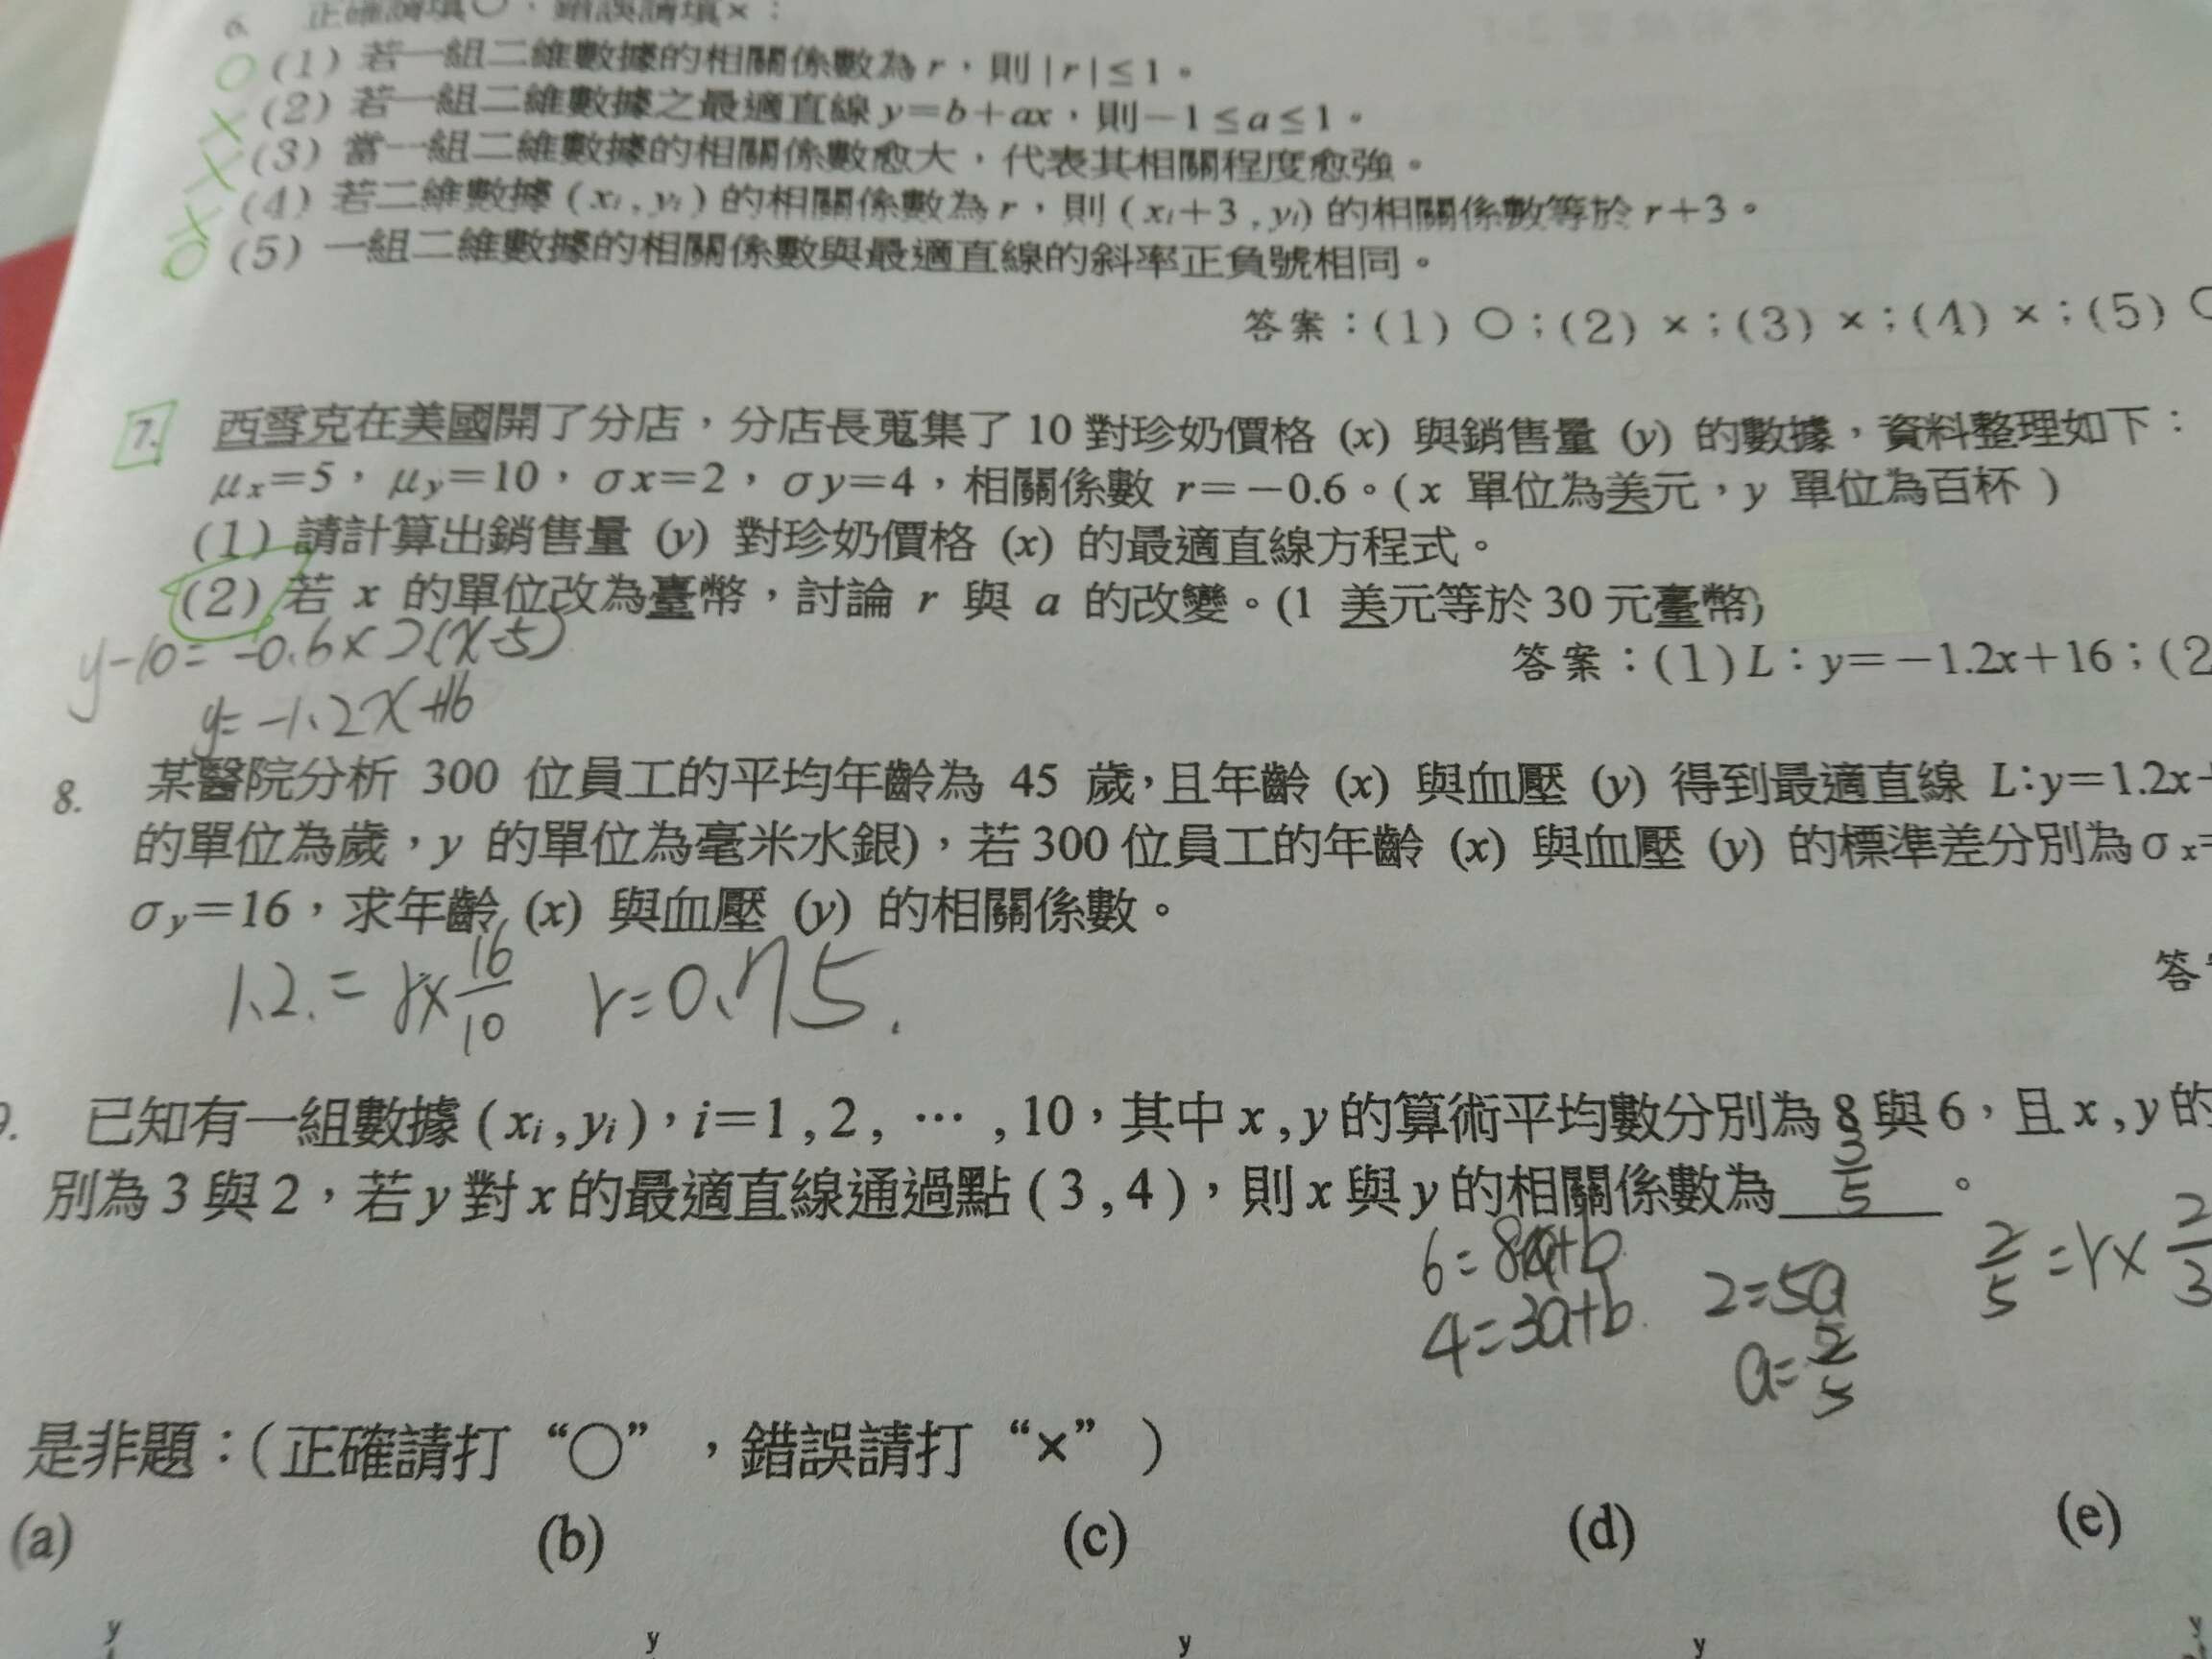 6. 正確請填○，錯誤請填×：
○ (1) 若一組二維數據的相關係數為 r，則 |r|≤1。
× (2) 若一組二維數據之最適直線 y=b+ax，則 −1≤a≤1。
× (3) 當一組二維數據的相關係數愈大，代表其相關程度愈強。
× (4) 若二維數據 (xi , yi) 的相關係數為 r，則 (xi+3 , yi) 的相關係數等於 r+3。
○ (5) 一組二維數據的相關係數與最適直線的斜率正負號相同。
答案：(1) ○；(2) ×；(3) ×；(4) ×；(5) ○
7. 西雪克在美國開了分店，分店長蒐集了 10 對珍奶價格 (x) 與銷售量 (y) 的數據，資料整理如下：
μx=5，μy=10，σx=2，σy=4，相關係數 r=−0.6。( x 單位為美元，y 單位為百杯 )
(1) 請計算出銷售量 (y) 對珍奶價格 (x) 的最適直線方程式。
(2) 若 x 的單位改為臺幣，討論 r 與 a 的改變。(1 美元等於 30 元臺幣)
y-10=-0.6×2(x-5)
答案：(1) L：y=−1.2x+16；(2
y=-1.2x+16
8. 某醫院分析 300 位員工的平均年齡為 45 歲，且年齡 (x) 與血壓 (y) 得到最適直線 L:y=1.2x
的單位為歲，y 的單位為毫米水銀)，若 300 位員工的年齡 (x) 與血壓 (y) 的標準差分別為 σx=
σy=16，求年齡 (x) 與血壓 (y) 的相關係數。
1.2.=r×16/10 r=0.75.
答
已知有一組數據 (xi , yi)，i=1 , 2 , … , 10，其中 x , y 的算術平均數分別為 8 與 6，且 x , y 的
別為 3 與 2，若 y 對 x 的最適直線通過點 ( 3 , 4 )，則 x 與 y 的相關係數為 3/5 。
6=8a+b 2=5a 2/5=r×2/3
4=3a+b. a=2/5
是非題：( 正確請打 “○” ，錯誤請打 “×” )
(a) (b) (c) (d) (e)
y y y y y